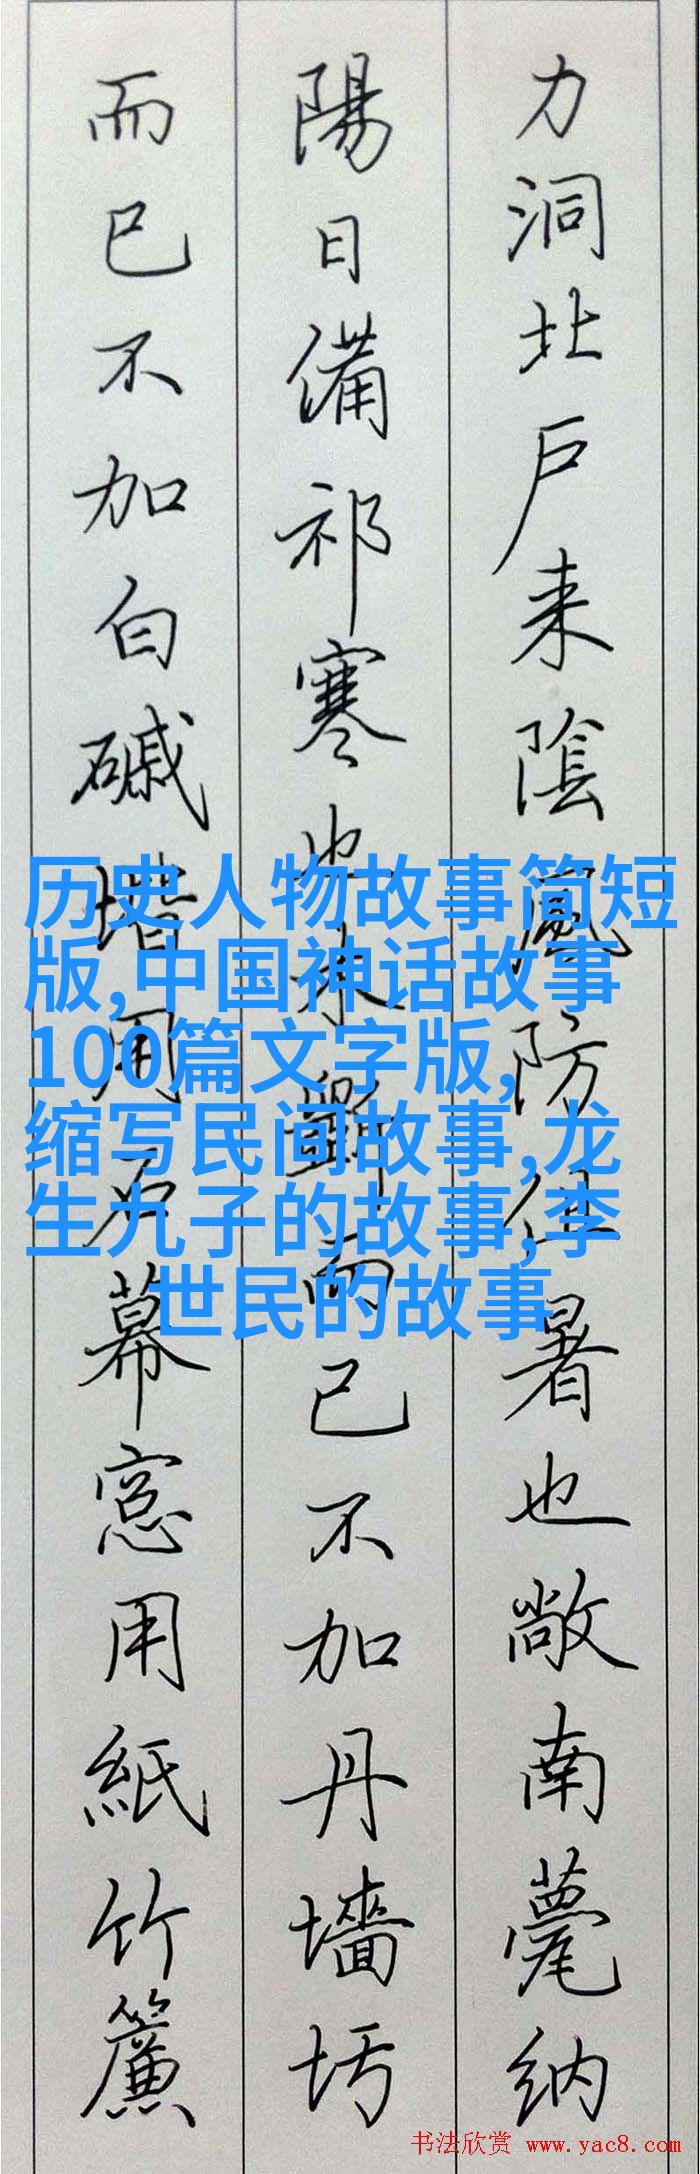 力洞北户来陰風防徂暑也敞南甍纳
陽日備祁寒也木斲而已不加丹墻圬
而已不加白磩堦用石幕窓用紙竹簾
历史人物故事简短
版,中国神话故事
100篇文字版,
缩写民间故事,龙
生九子的故事,李
世民的故事
书法欣赏 www.yac8.com